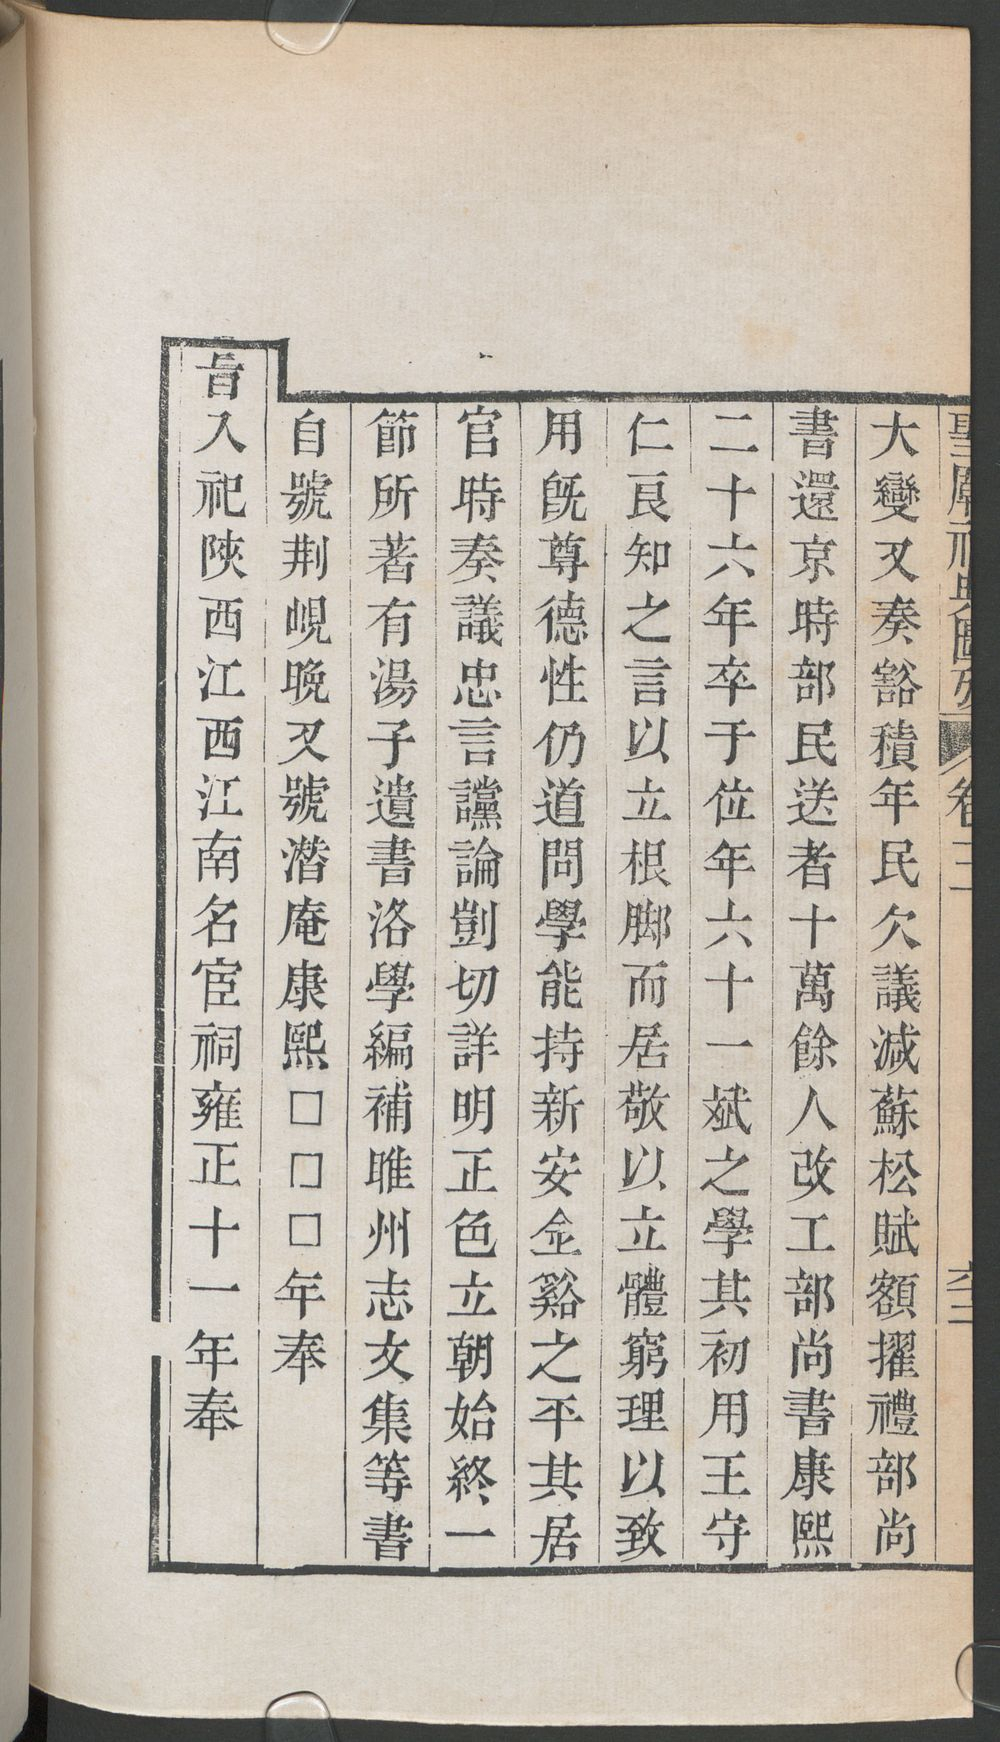 聖廟祀典圖考 卷三 六二
大變又奏豁積年民欠議減蘇松賦額擢禮部尚
書還京時部民送者十萬餘人改工部尚書康熙
二十六年卒于位年六十一斌之學其初用王守
仁良知之言以立根脚而居敬以立體窮理以致
用旣尊德性仍道問學能持新安金谿之平其居
官時奏議忠言讜論剴切詳明正色立朝始終一
節所著有湯子遺書洛學編補睢州志文集等書
自號荆峴晚又號潛庵康熙□□□年奉
旨入祀陝西江西江南名宦祠雍正十一年奉